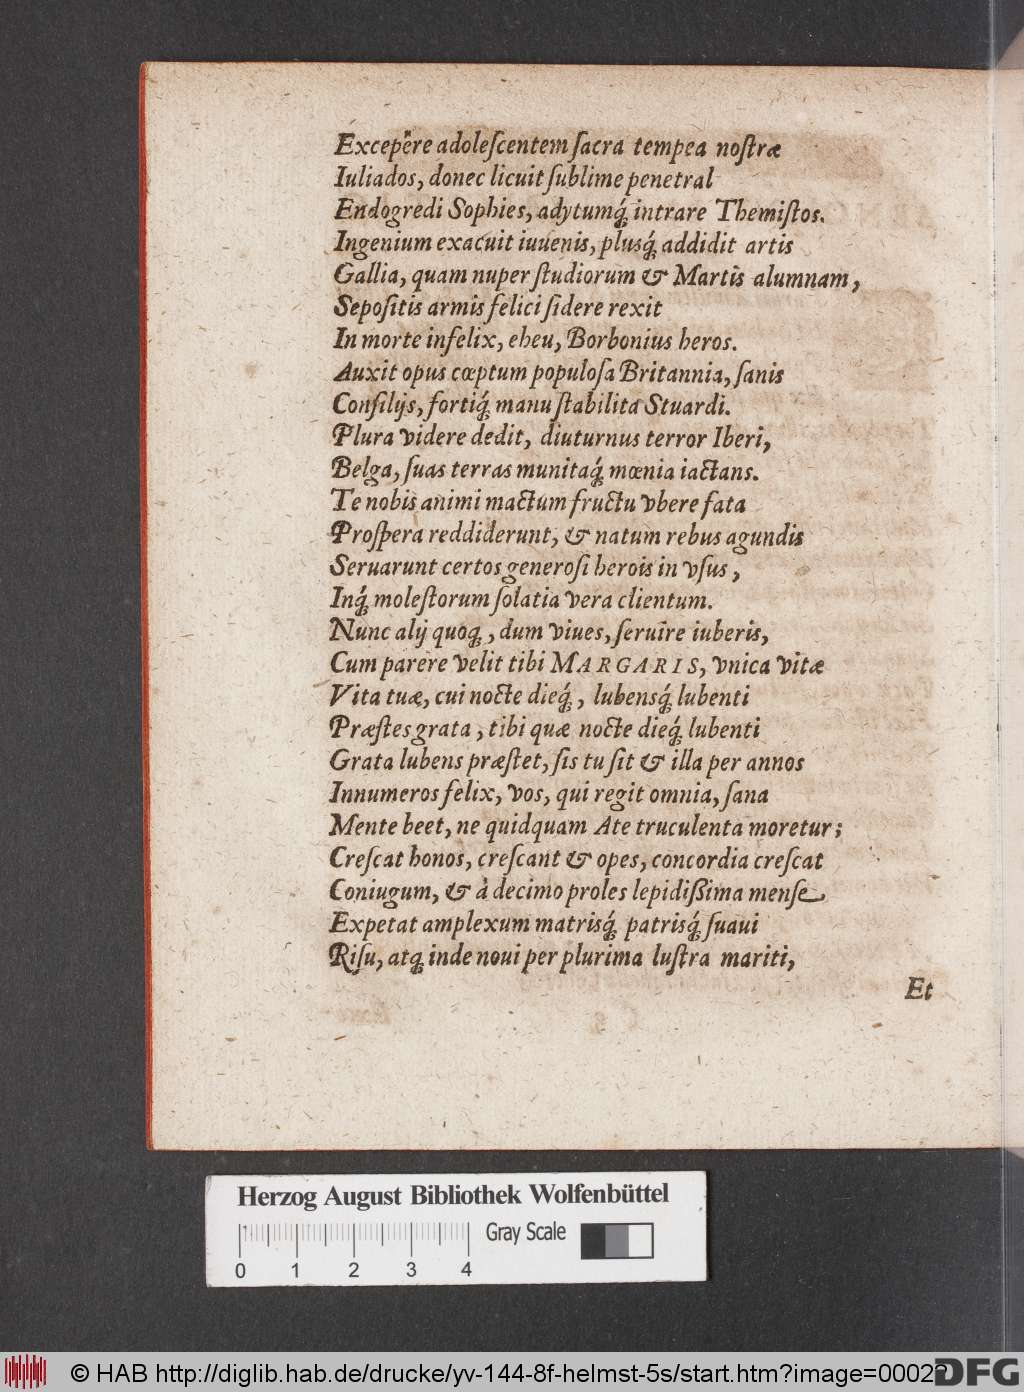 Excepêre adoleſcentem ſacra tempea noſtræ
Iuliados, donec licuit ſublime penetral
Endogredi Sophies, adytumq́; intrare Themiſtos.
Ingenium exacuit iuuenis, pluſq́; addidit artis
Gallia, quam nuper ſtudiorum & Martis alumnam,
Sepoſitis armis felici ſidere rexit
In morte infelix, eheu, Borbonius heros.
Auxit opus cœptum populoſa Britannia, ſanis
Conſilijs, fortiq́; manu ſtabilita Stuardi.
Plura videre dedit, diuturnus terror Iberi,
Belga, ſuas terras munitaq́; mœnia iactans.
Te nobis animi mactum fructu vbere fata
Proſpera reddiderunt, & natum rebus agundis
Seruarunt certos generoſi herois in vſus,
Inq́; moleſtorum ſolatia vera clientum.
Nunc alij quoq;, dum viues, ſeruire iuberis,
Cum parere velit tibi MARGARIS, vnica vitæ
Vita tuæ, cui nocte dieq́;, lubenſq́; lubenti
Præſtes grata, tibi quæ nocte dieq́; lubenti
Grata lubens præſtet, ſis tu ſit & illa per annos
Innumeros felix, vos, qui regit omnia, ſana
Mente beet, ne quidquam Ate truculenta moretur;
Creſcat honos, creſcant & opes, concordia creſcat
Coniugum, & à decimo proles lepidißima menſe
Expetat amplexum matriſq́; patriſq́; ſuaui
Riſu, atq; inde noui per plurima luſtra mariti,
Et
Herzog August Bibliothek Wolfenbüttel
Gray Scale
0 1 2 3 4
© HAB http://diglib.hab.de/drucke/yv-144-8f-helmst-5s/start.htm?image=00022
DFG